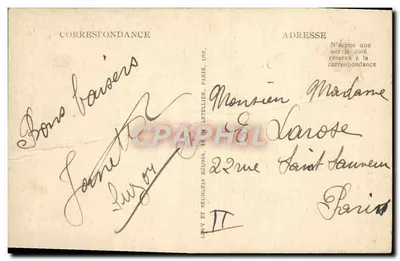 CORRESPONDANCE
ADRESSE
N'écrire que
sur le côté
réservé à la
correspondance
Bons baisers
Suzon
LÉVY ET NEURDEIN RÉUNIS, LETELLIER, PARIS, IMP.
Monsieur Madame
E Larose
22 rue Saint Sauveur
Paris
II
Carte-Postale